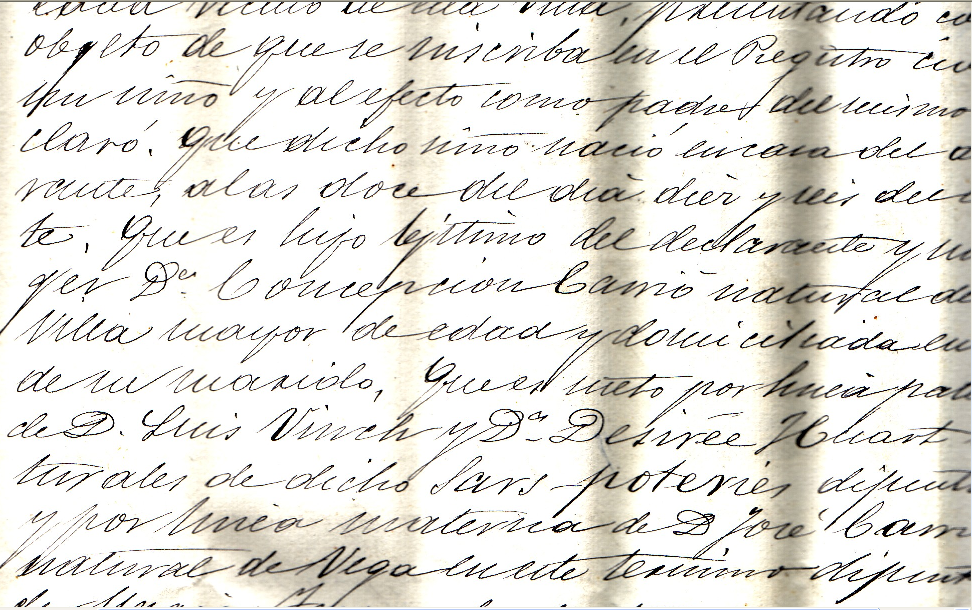 vecino de esta villa, presentando co
objeto de que se inscriba en el Registro civ
un niño y al efecto como padre del mismo
claró. Que dicho niño nació en casa del d
rante, a las doce del dia diez y seis del
te. Que es hijo legitimo del declarante y mu
ger Dª Concepcion Carrió natural de
Villa mayor de edad y domiciliada en
de su marido, Que es nieto por linea pate
de D. Luis Vinch y Dª Desirée Huart
turales de dicho Sars-poteries difunt
y por linea materna de D José Carri
natural de Vega en este termino difunt